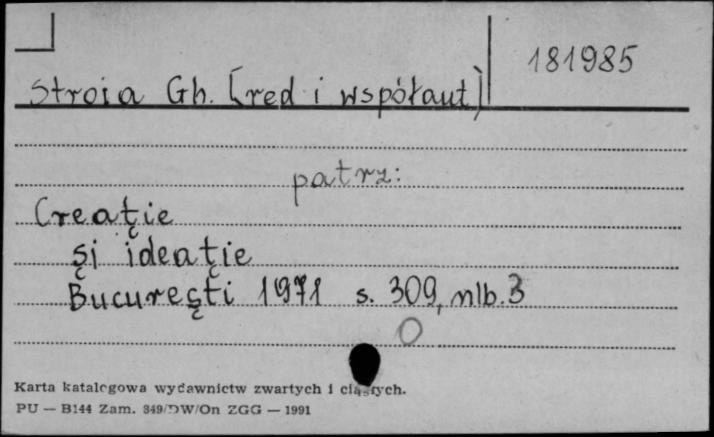 181985
Stroia Gh. (red i współaut)
patrz:
Creaţie
şi ideaţie
Bucureşti 1971 s. 309, nlb. 3
Karta katalogowa wydawnictw zwartych i ciągłych.
PU — B144 Zam. 349/DW/On ZGG — 1991